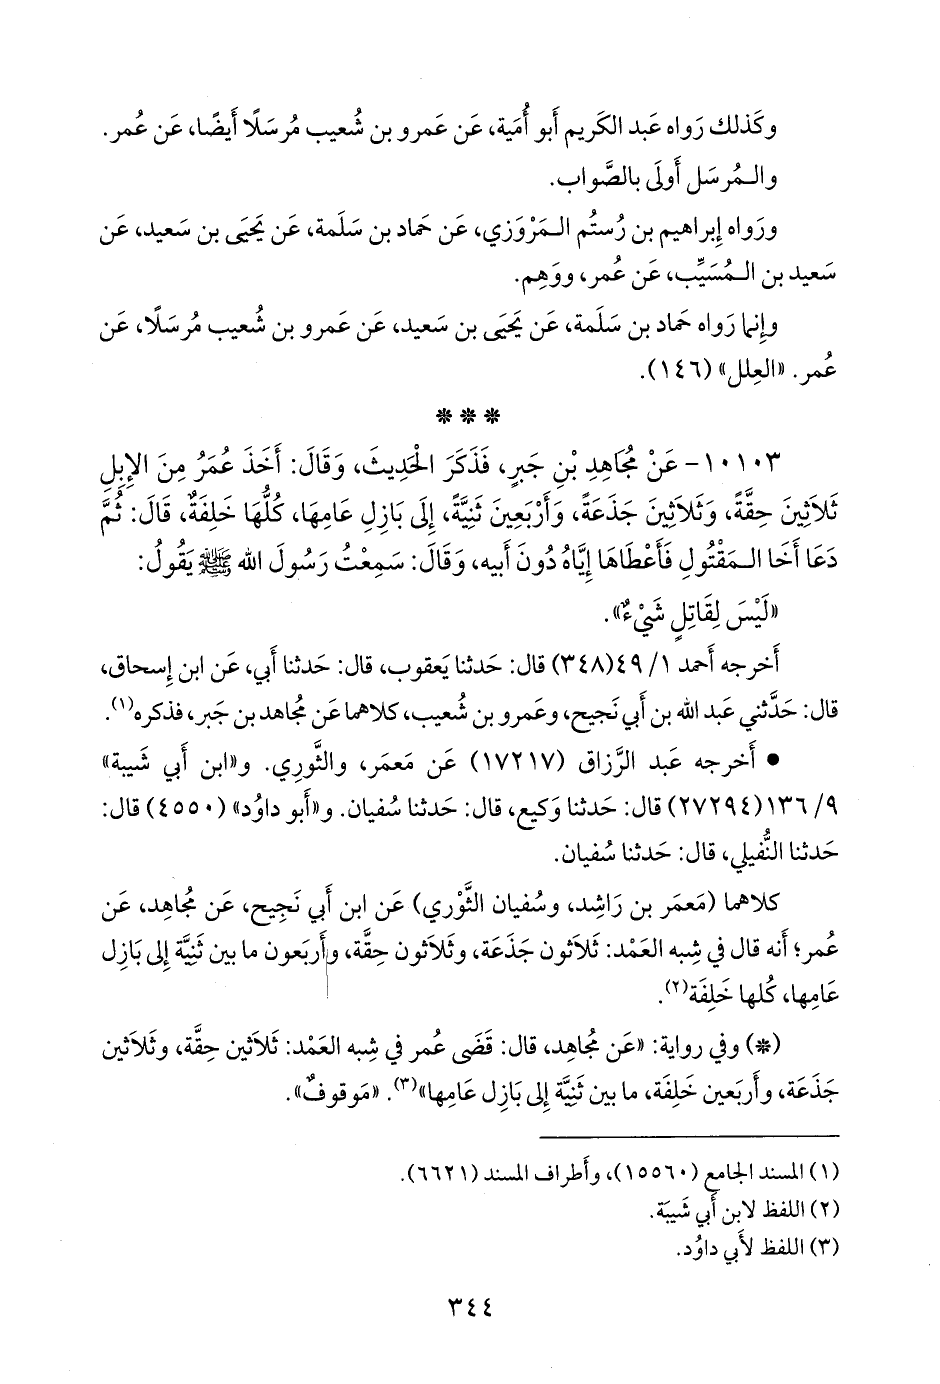 وكَذلك رَواه عَبد الكَريم أَبو أُمَية، عَن عَمرو بن شُعيب مُرسَلًا أَيضًا، عَن عُمر.
والـمُرسَل أَولَى بالصَّواب.
ورَواه إِبراهيم بن رُستُم الـمَرْوَزي، عَن حَماد بن سَلَمة، عَن يَحيَى بن سَعيد، عَن
سَعيد بن الـمُسَيِّب، عَن عُمر، ووَهِم.
وإِنما رَواه حَماد بن سَلَمة، عَن يَحيَى بن سَعيد، عَن عَمرو بن شُعيب مُرسَلًا، عَن
عُمر. «العِلل» (١٤٦).
* * *
١٠١٠٣- عَنْ مُجَاهِدِ بْنِ جَبرٍ، فَذَكَرَ الْحَدِيثَ، وَقَالَ: أَخَذَ عُمَرُ مِنَ الإِبِلِ
ثَلاَثِينَ حِقَّةً، وَثَلاَثِينَ جَذَعَةً، وَأَرْبَعِينَ ثَنِيَّةً، إِلَى بَازِلِ عَامِهَا، كُلُّهَا خَلِفَةٌ، قَالَ: ثُمَّ
دَعَا أَخَا الـمَقْتُولِ فَأَعْطَاهَا إِيَّاهُ دُونَ أَبيه، وَقَالَ: سَمِعْتُ رَسُولَ الله ﷺ يَقُولُ:
«لَيْسَ لِقَاتِلٍ شَيْءٌ».
أَخرجه أَحمد ١/ ٤٩(٣٤٨) قال: حَدثنا يَعقوب، قال: حَدثنا أَبي، عَن ابن إِسحاق،
قال: حَدَّثني عَبد الله بن أَبي نَجيح، وعَمرو بن شُعيب، كلاهما عَن مُجاهد بن جَبر، فذكره(١).
• أَخرجه عَبد الرَّزاق (١٧٢١٧) عَن مَعمَر، والثَّوري. و«ابن أَبي شَيبة»
٩/ ١٣٦(٢٧٢٩٤) قال: حَدثنا وَكيع، قال: حَدثنا سُفيان. و«أَبو داوُد» (٤٥٥٠) قال:
حَدثنا النُّفيلي، قال: حَدثنا سُفيان.
كلاهما (مَعمَر بن رَاشِد، وسُفيان الثَّوْري) عَن ابن أَبي نَجيح، عَن مُجاهد، عَن
عُمر؛ أَنه قال في شِبه العَمْد: ثَلاَثون جَذَعَة، وثَلاَثون حِقَّة، وأَربَعون ما بين ثَنِيَّة إِلى بَازِل
عَامِها، كُلها خَلِفَة(٢).
(*) وفي رواية: «عَن مُجاهد، قال: قَضَى عُمر في شِبه العَمْد: ثَلاَثين حِقَّة، وثَلاَثين
جَذَعَة، وأَربَعين خَلِفَة، ما بين ثَنِيَّة إِلى بَازِل عَامِها»(٣). «مَوقوفٌ».
(١) المسند الجامع (١٥٥٦٠)، وأَطراف المسند (٦٦٢١).
(٢) اللفظ لابن أَبي شَيبَة.
(٣) اللفظ لأَبي داوُد.
٣٤٤